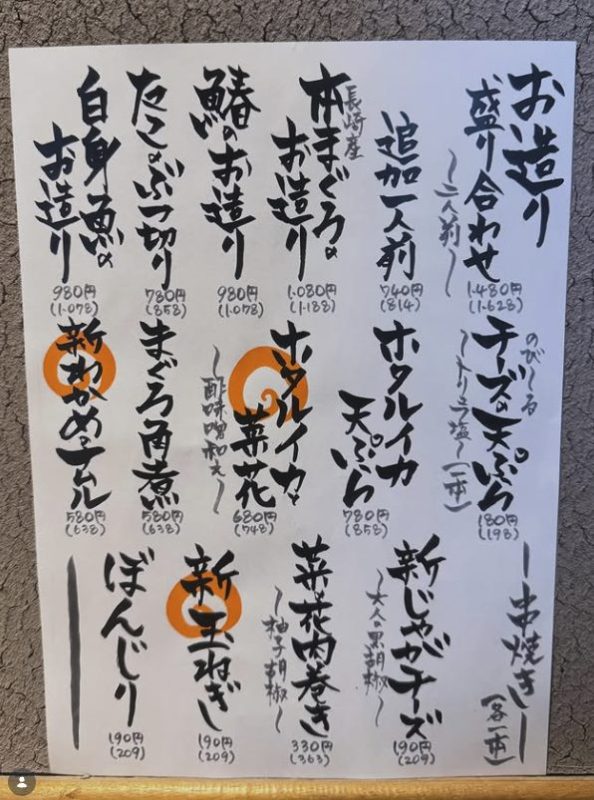 お造り
盛り合わせ
〜二人前〜
1.480円
(1.628)
追加一人前
740円
(814)
長崎産
本まぐろの
お造り
1.080円
(1.188)
鰆のお造り
980円
(1.078)
たこのぶつ切り
780円
(858)
白身魚の
お造り
980円
(1.078)
のび〜る
チーズの天ぷら
〜トリュフ塩〜(一本)
180円
(198)
ホタルイカ
天ぷら
780円
(858)
ホタルイカと
菜花
〜酢味噌和え〜
680円
(748)
まぐろ角煮
580円
(638)
新わかめのナムル
580円
(638)
〜串焼き〜
(各一本)
新じゃがチーズ
〜大人の黒胡椒〜
190円
(209)
菜の花肉巻き
〜柚子胡椒〜
330円
(363)
新玉ねぎし
190円
(209)
ぼんじり
190円
(209)